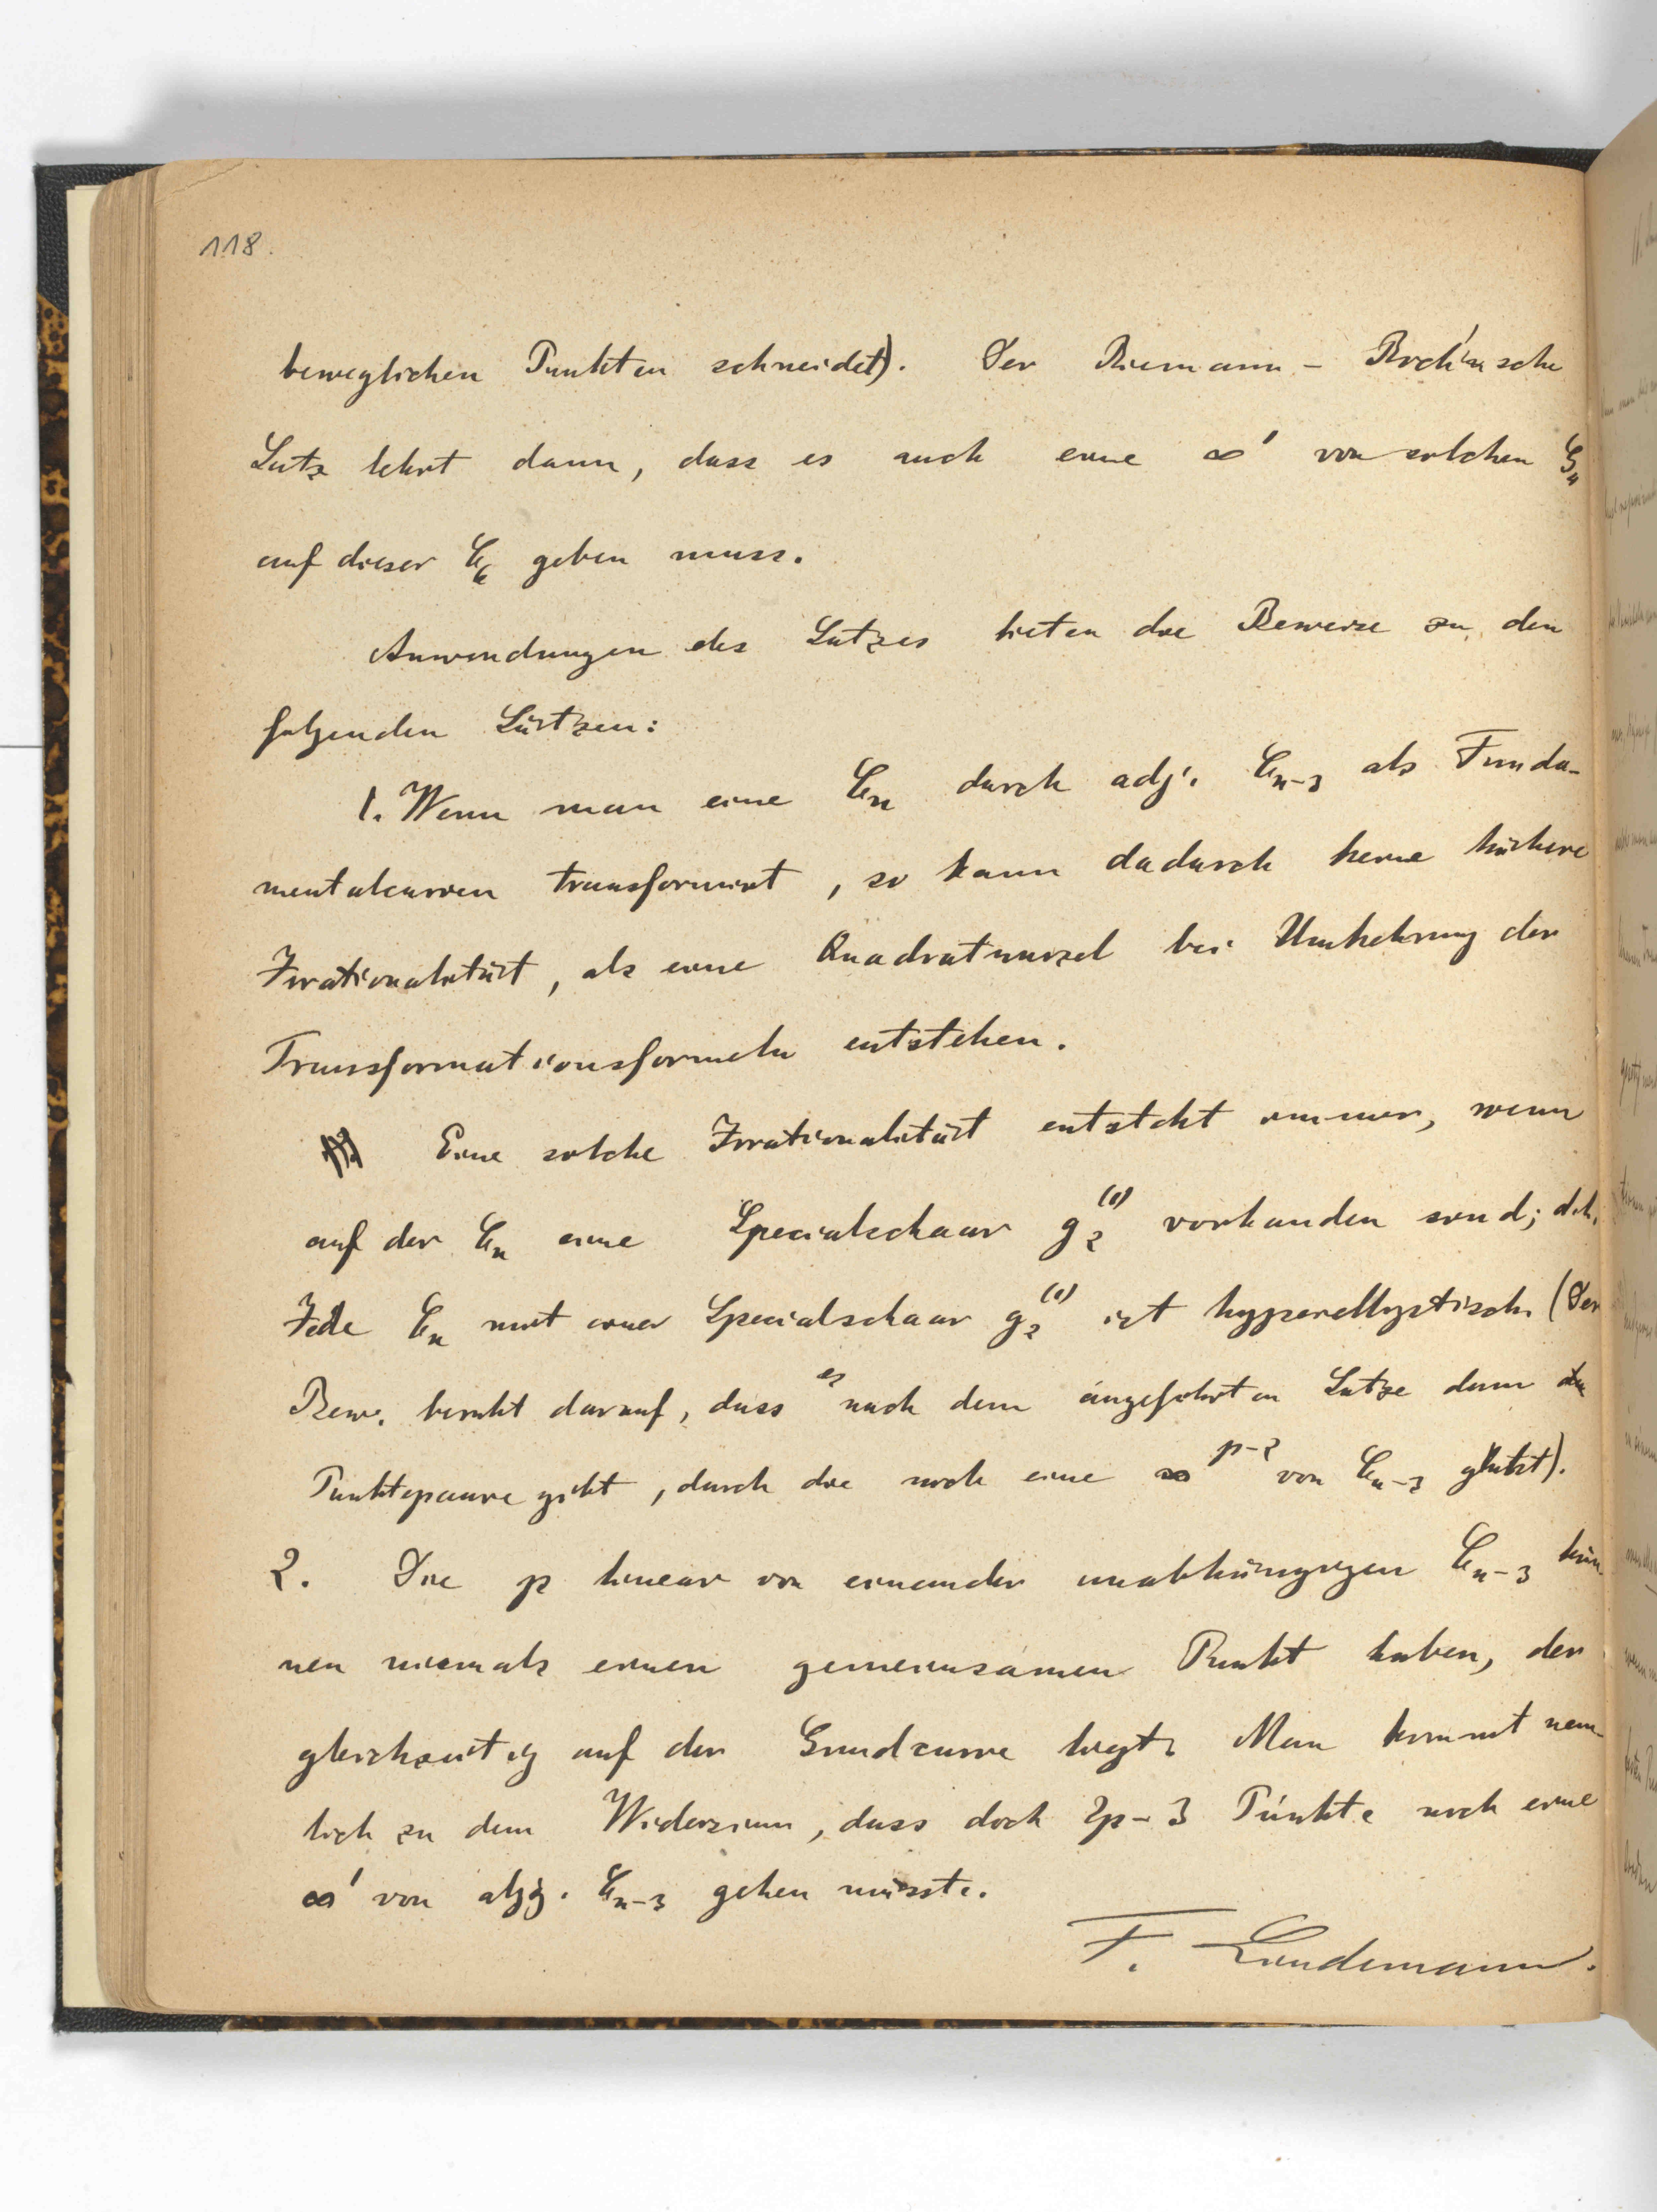 118.
beweglichen Punkten schneidet). Der Riemann-Roch'sche
Satz lehrt dann, dass es auch eine ∞¹ von solchen G₄
auf dieser C₆ geben muss.
Anwendungen des Satzes bieten die Beweise zu den
folgenden Sätzen:
1. Wenn man eine Cₙ durch adj. Cₙ₋₃ als Funda-
mentalcurven transformirt, so kann dadurch keine höhere
Irrationalität, als eine Quadratwurzel bei Umkehrung der
Transformationsformeln entstehen.
Eine solche Irrationalität entsteht immer, wenn
auf der Cₙ eine Specialschaar g₂⁽¹⁾ vorhanden sind; d.h.
Jede Cₙ mit einer Specialschaar g₂⁽¹⁾ ist hyperellyptisch. (Der
Bew. beruht darauf, dass es nach dem angeführten Satze dann
Punktepaare giebt, durch die noch eine ∞ᵖ⁻² von Cₙ₋₃ geht).
2. Die p linear von einander unabhängigen Cₙ₋₃ kön-
nen niemals einen gemeinsamen Punkt haben, der
gleichzeitig auf der Grundcurve liegt. Man kommt näm-
lich zu dem Widersinn, dass doch 2p-3 Punkte noch eine
∞¹ von adj. Cₙ₋₃ gehen müsste.
F. Lindemann.